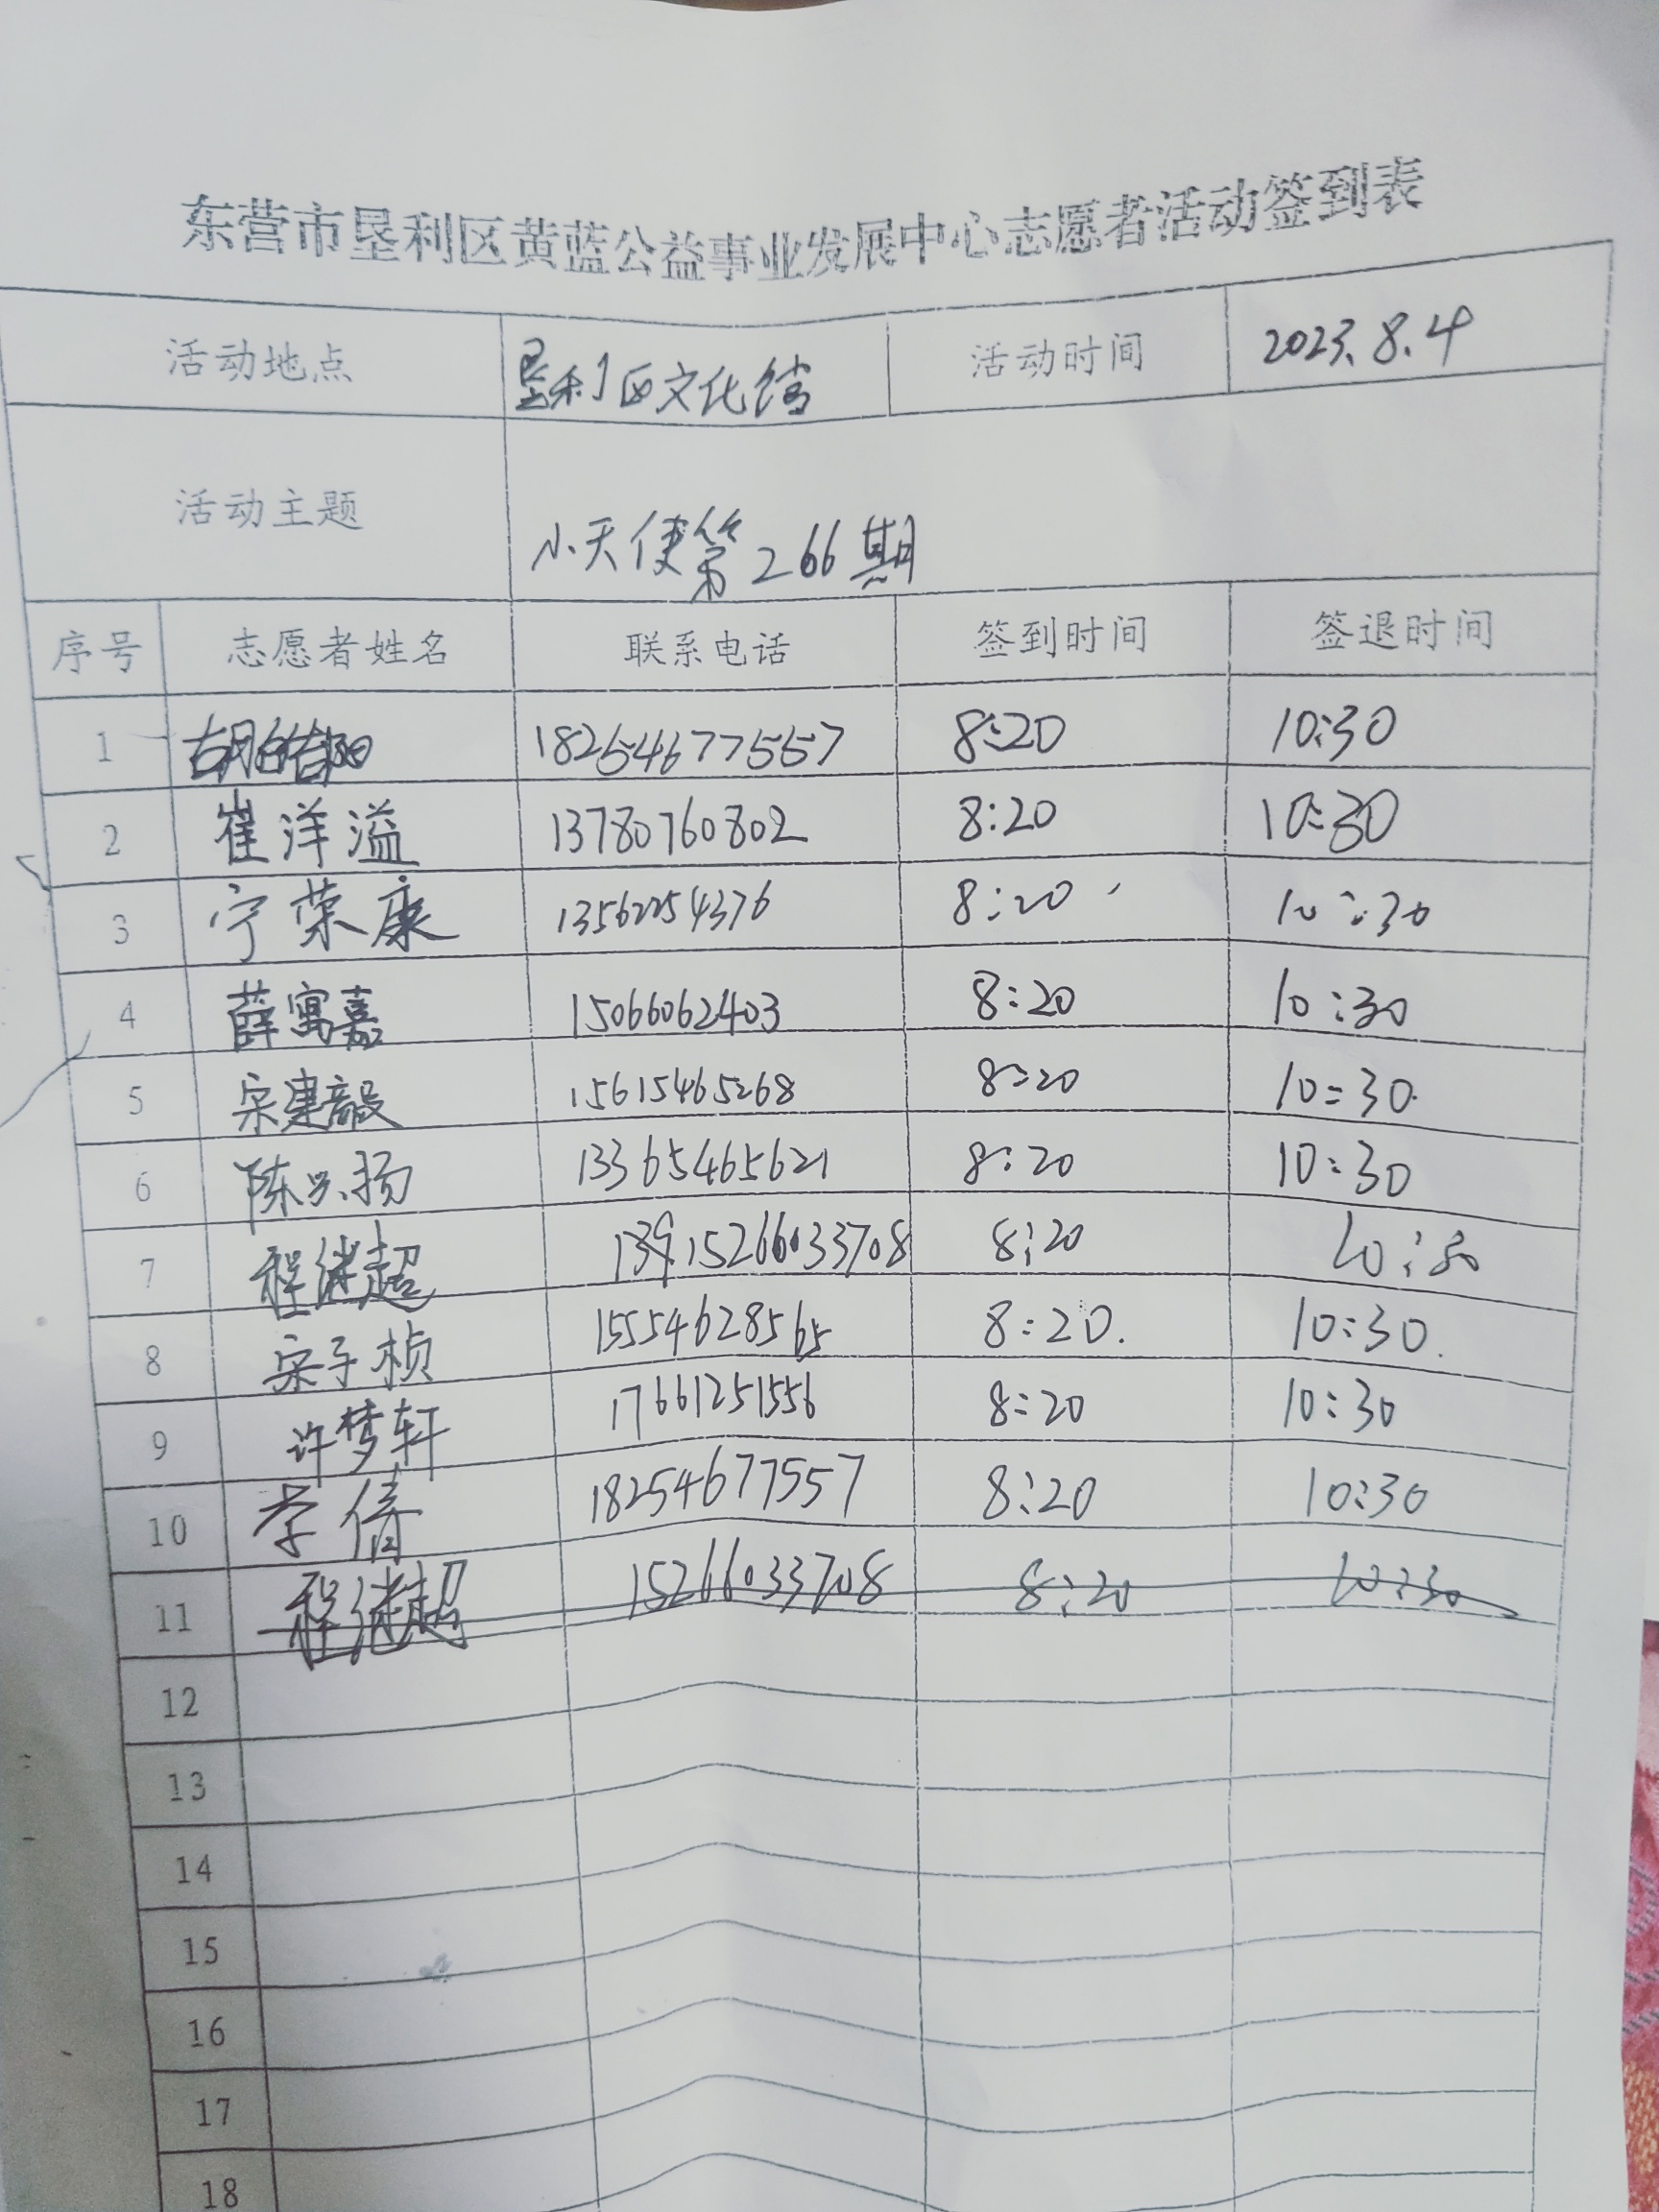 东营市垦利区黄蓝公益事业发展中心志愿者活动签到表
活动地点 垦利区文化馆 活动时间 2023.8.4
活动主题 小天使第266期
序号 志愿者姓名 联系电话 签到时间 签退时间
1 18254677557 8:20 10:30
2 崔洋溢 13780760802 8:20 10:30
3 宁荣康 13562254376 8:20 10:30
4 薛寓嘉 15066062403 8:20 10:30
5 宋建毅 15615465268 8:20 10:30
6 陈兴扬 13365465621 8:20 10:30
7 程继超 15266033708 8:20 10:30
8 宋子桢 15554628565 8:20. 10:30.
9 许梦轩 17661251556 8:20 10:30
10 李倩 18254677557 8:20 10:30
11 程继超 15266033708 8:20 10:30
12
13
14
15
16
17
18